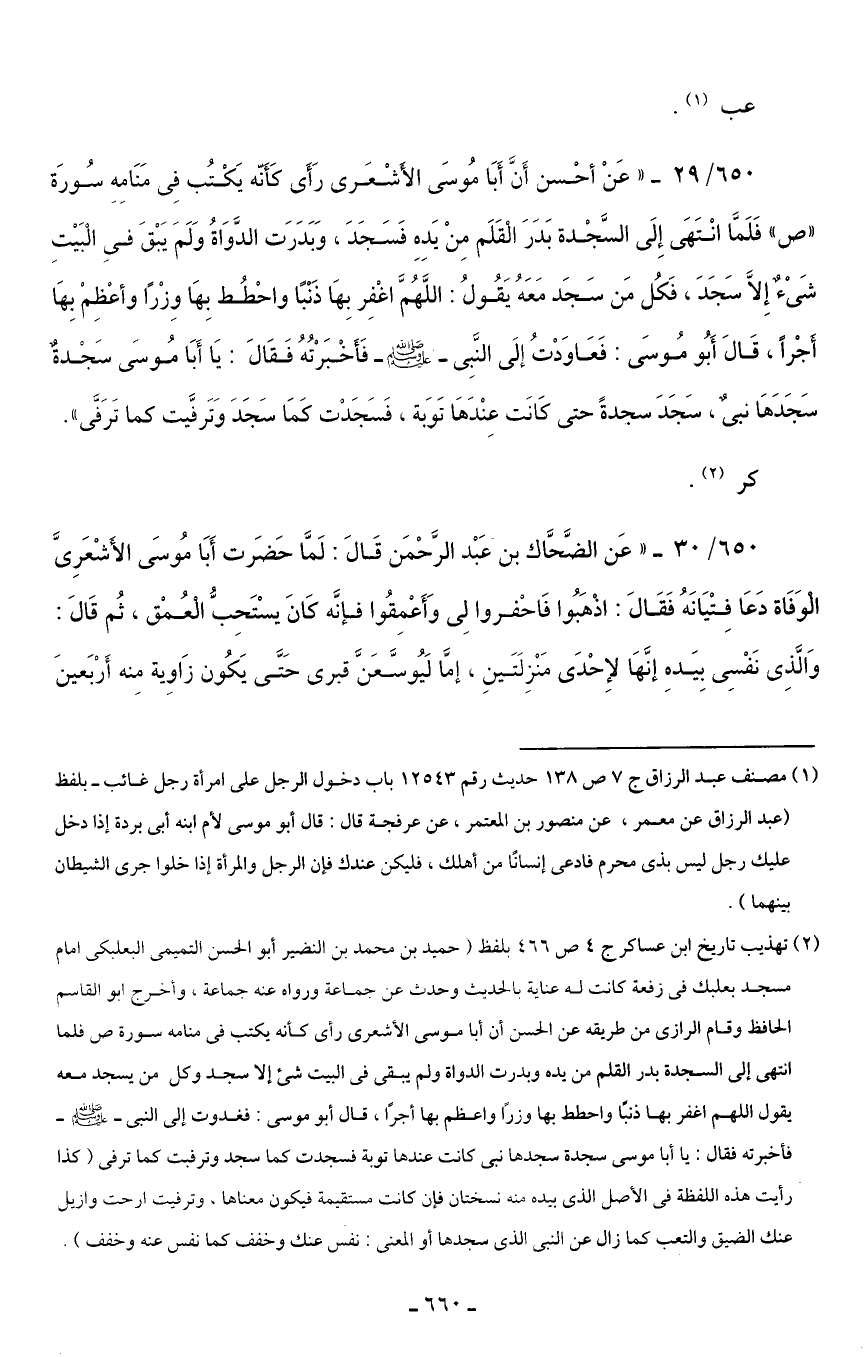 عب (١) .
٦٥٠/ ٢٩ ـ « عَنْ أحْسن أَنَّ أبَا مُوسَى الأَشْعَرى رَأَى كَأَنَّه يَكْتُب فى مَنَامه سُورَة
«ص» فَلَمَّا انْتَهَى إِلَى السَّجْدة بَدَرَ الْقَلَم منْ يَده فَسَجَدَ ، وَبَدَرَت الدَّوَاةُ وَلَمَ يَبْقَ فى الْبَيْت
شَىْءٌ إِلاَّ سَجَدَ ، فَكُل مَن سَجَد مَعَهُ يَقُولُ : اللَّهُمَّ اغْفر بهَا ذَنْبًا واحْطُط بهَا وِزْرًا وأعْظمْ بهَا
أَجْراً ، قَالَ أَبُو مُوسَى : فَعَاوَدْتُ إِلَى النَّبى ـ ﷺ ـ فَأَخْبَرْتُهُ فَقَالَ : يَا أبَا مُوسَى سَجْدةٌ
سَجَدَهَا نبىٌ ، سَجَدَ سجدةً حتى كَانَت عِنْدَهَا تَوبَة ، فَسَجَدْت كَمَا سَجَدَ وَتَرقَّيت كما تَرَقَّى» .
كر (٢) .
٦٥٠/ ٣٠ ـ « عَن الضَّحَّاك بن عَبْد الرَّحْمَن قَالَ : لَمَّا حَضَرت أبَا مُوسَى الأشْعَرِىَّ
الْوَفَاة دَعَا فِتْيَانَهُ فَقَالَ : اذْهَبُوا فَاحْفروا لى وَأَعْمقُوا فإِنَّه كَانَ يسْتَحبُّ الْعُمْق ، ثُم قَالَ :
وَالَّذِى نَفْسى بِيَده إِنَّهَا لإِحْدَى مَنْزِلَتَين ، إِمَّا لَيُوسَّعَنَّ قبرى حَتَّى يَكُون زَاوية منه أرْبَعينَ
(١) مصنف عبد الرزاق ج ٧ ص ١٣٨ حديث رقم ١٢٥٤٣ باب دخول الرجل على امرأة رجل غائب ـ بلفظ
(عبد الرزاق عن معمر ، عن منصور بن المعتمر ، عن عرفجة قال : قال أبو موسى لأم ابنه أبى بردة إذا دخل
عليك رجل ليس بذى محرم فادعى إنسانًا من أهلك ، فليكن عندك فإن الرجل والمرأة إذا خلوا جرى الشيطان
بينهما ) .
(٢) تهذيب تاريخ ابن عساكر ج ٤ ص ٤٦٦ بلفظ ( حميد بن محمد بن النضير أبو الحسن التميمى البعلبكى امام
مسجد بعلبك فى زفعة كانت له عناية بالحديث وحدث عن جماعة ورواه عنه جماعة ، وأخرج ابو القاسم
الحافظ وقام الرازى من طريقه عن الحسن أن أبا موسى الأشعرى رأى كأنه يكتب فى منامه سورة ص فلما
انتهى إلى السجدة بدر القلم من يده وبدرت الدواة ولم يبقى فى البيت شئ إلا سجد وكل من يسجد معه
يقول اللهم اغفر بها ذنبًا واحطط بها وزراً واعظم بها أجراً ، قال أبو موسى : فغدوت إلى النبى ـ ﷺ ـ
فأخبرته فقال : يا أبا موسى سجدة سجدها نبى كانت عندها توبة فسجدت كما سجد وترقبت كما ترقى ( كذا
رأيت هذه اللفظة فى الأصل الذى بيده منه نسختان فإن كانت مستقيمة فيكون معناها ، وترفيت ارحت وازيل
عنك الضيق والتعب كما زال عن النبى الذى سجدها أو المعنى : نفس عنك وخفف كما نفس عنه وخفف ) .
ـ ٦٦٠ ـ